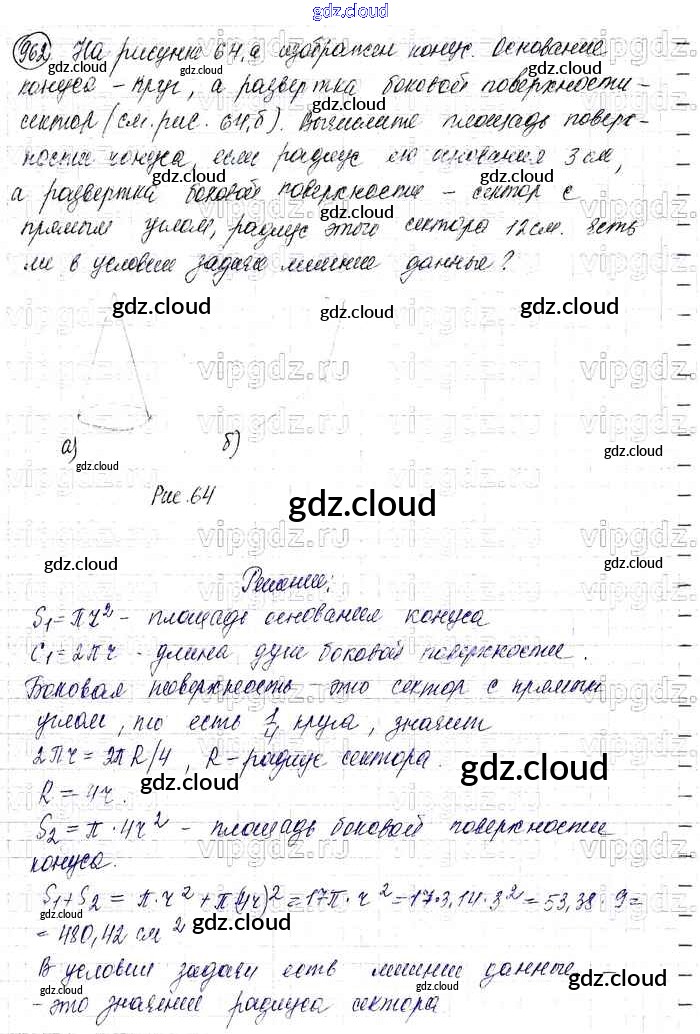 gdz.cloud
962 На рисунке 64,а изображен конус. Основание
конуса - круг, а развертка боковой поверхности -
сектор (см. рис. 64,б). Вычислите площадь поверх-
ности конуса, если радиус его основания 3 см,
а развертка боковой поверхности - сектор с
прямым углом, радиус этого сектора 12 см. Есть
ли в условии задачи лишние данные?
gdz.cloud
vipgdz.ru
а) б)
Рис. 64
gdz.cloud
Решение:
S₁ = πr² - площадь основания конуса
C₁ = 2πr - длина дуги боковой поверхности.
Боковая поверхность - это сектор с прямым
углом, то есть 1/4 круга, значит
2πr = 2πR/4, R - радиус сектора.
R = 4r.
S₂ = π·4r² - площадь боковой поверхности
конуса.
S₁+S₂ = π·r² + π(4r)² = 17π·r² = 17·3,14·3² = 53,38·9 =
= 480,42 см²
В условии задачи есть лишние данные -
- это значение радиуса сектора
gdz.cloud